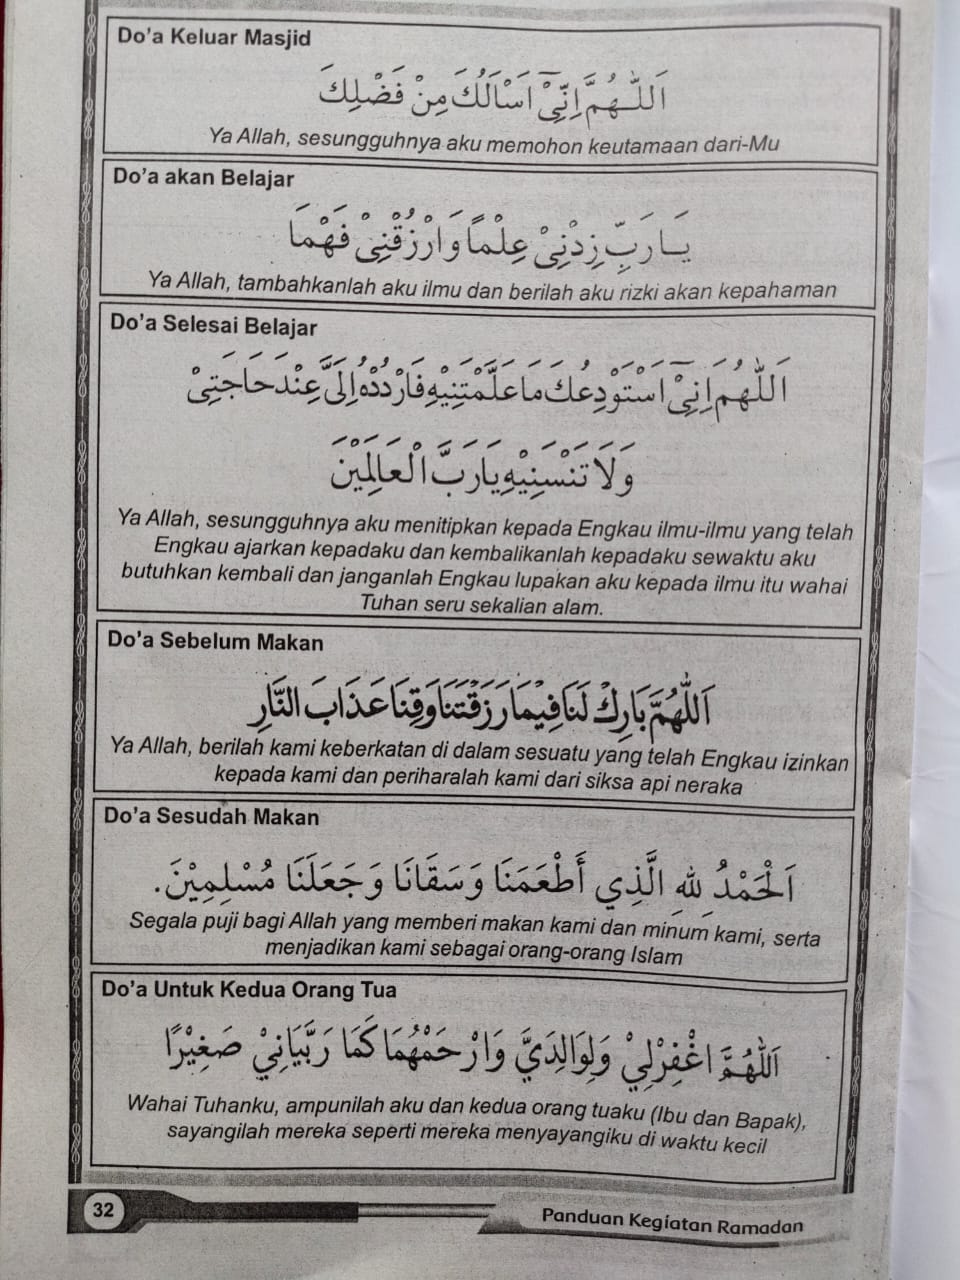 Do'a Keluar Masjid
اَللّٰهُمَّ اِنِّيْٓ اَسْأَلُكَ مِنْ فَضْلِكَ
Ya Allah, sesungguhnya aku memohon keutamaan dari-Mu
Do'a akan Belajar
يَارَبِّ زِدْنِيْ عِلْمًا وَارْزُقْنِيْ فَهْمَا
Ya Allah, tambahkanlah aku ilmu dan berilah aku rizki akan kepahaman
Do'a Selesai Belajar
اَللّٰهُمَ اِنِيْٓ اَسْتَوْدِعُكَ مَا عَلَّمْتَنِيْهِ فَارْدُدْهُ اِلَيَّ عِنْدَ حَاجَتِيْ
وَلَا تَنْسَنِيْهِ يَارَبَّ الْعَالَمِيْنَ
Ya Allah, sesungguhnya aku menitipkan kepada Engkau ilmu-ilmu yang telah
Engkau ajarkan kepadaku dan kembalikanlah kepadaku sewaktu aku
butuhkan kembali dan janganlah Engkau lupakan aku kepada ilmu itu wahai
Tuhan seru sekalian alam.
Do'a Sebelum Makan
اَللّٰهُمَّ بَارِكْ لَنَا فِيْمَا رَزَقْتَنَا وَقِنَا عَذَابَ النَّارِ
Ya Allah, berilah kami keberkatan di dalam sesuatu yang telah Engkau izinkan
kepada kami dan periharalah kami dari siksa api neraka
Do'a Sesudah Makan
اَلْحَمْدُ لِلّٰهِ الَّذِي أَطْعَمَنَا وَسَقَانَا وَجَعَلَنَا مُسْلِمِيْنَ.
Segala puji bagi Allah yang memberi makan kami dan minum kami, serta
menjadikan kami sebagai orang-orang Islam
Do'a Untuk Kedua Orang Tua
اَللّٰهُمَّ اغْفِرْلِيْ وَلِوَالِدَيَّ وَارْحَمْهُمَا كَمَا رَبَّيَانِيْ صَغِيْرًا
Wahai Tuhanku, ampunilah aku dan kedua orang tuaku (Ibu dan Bapak),
sayangilah mereka seperti mereka menyayangiku di waktu kecil
32
Panduan Kegiatan Ramadan